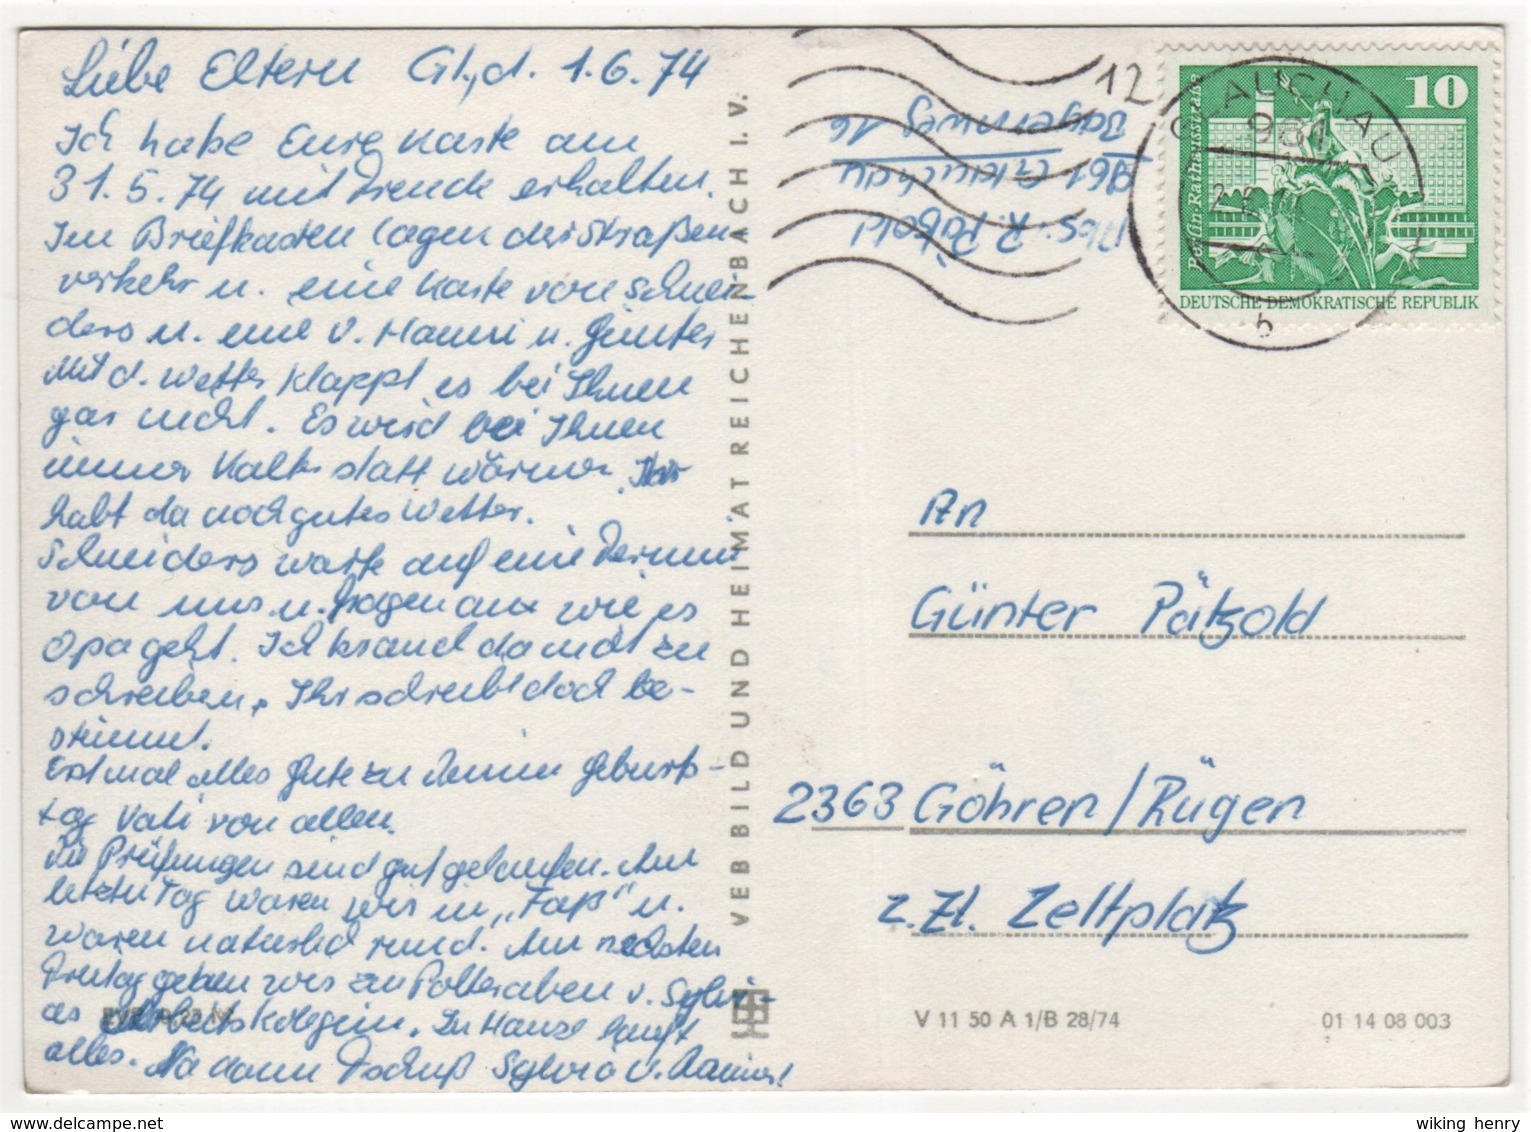 Liebe Eltern Gl., d. 1.6.74
Ich habe Eure Karte am
31.5.74 mit Freude erhalten.
Im Briefkasten lagen der Straßen-
verkehr u. eine Karte von Schnei-
ders u. eine v. Hanni u. Günter
Mit d. Wetter klappt es bei Ihnen
gar nicht. Es wird bei Ihnen
immer Kälter statt wärmer. Ihr
habt da noch gutes Wetter.
Schneiders warte auf eine Termin
von uns u. fragen an wie es
Opa geht. Ich brauch da nicht zu
schreiben, Ihr schreibt doch be-
stimmt.
Erstmal alles Gute zu Deinem Geburts-
tag Vati von allen.
Die Prüfungen sind gut gelaufen. Am
letzten Tag waren wir in „Faß" u.
waren natürlich rund. Am nächsten
Freitag gehen wir zu Polterabend v. Sylvi-
as Arbeitskolegin. Zu Hause läuft
alles. Na dann Tschüß Sylvia u. Rainer!
VEB BILD UND HEIMAT REICHENBACH I. V.
Abs. R. Pätzold
961 Glauchau
Bayernweg 16
12
GLAUCHAU
961
b
10
Berlin-Rathausstraße
DEUTSCHE DEMOKRATISCHE REPUBLIK
An
Günter Pätzold
2363 Göhren/Rügen
z.Zt. Zeltplatz
V 11 50 A 1/B 28/74
01 14 08 003
wiking henry